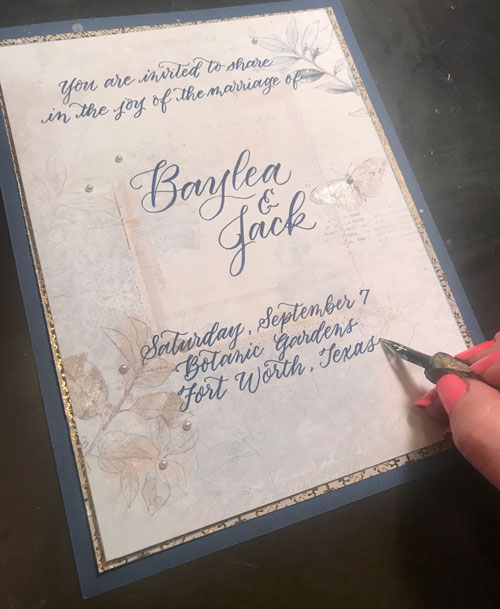 You are invited to share
in the joy of the marriage of
Baylea
&
Jack
Saturday, September 7
Botanic Gardens
Fort Worth, Texas